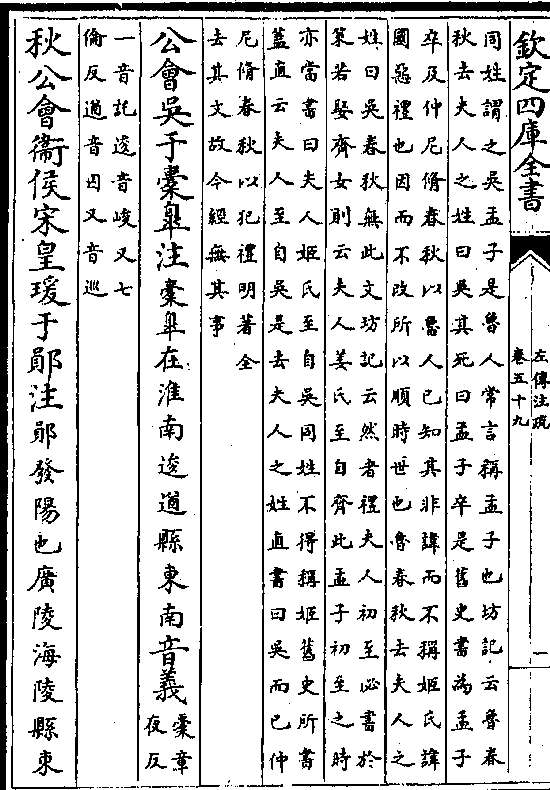 欽定四庫全書
左傳注疏
卷五十九
一
同姓謂之吳孟子是魯人常言稱孟子也坊記云魯春
秋去夫人之姓曰吳其死曰孟子卒是舊史書為孟子
卒及仲尼脩春秋以魯人已知其非諱而不稱姬氏諱
國惡禮也因而不改所以順時世也魯春秋去夫人之
姓曰吳春秋無此文坊記云然者禮夫人初至必書於
策若娶齊女則云夫人姜氏至自齊此孟子初至之時
亦當書曰夫人姬氏至自吳同姓不得稱姬舊史所書
蓋直云夫人至自吳是去夫人之姓直書曰吳而已仲
尼脩春秋以犯禮明著全
去其文故今經無其事
公會吳于橐臯注橐臯在淮南逡遒縣東南音義橐章
夜反
一音託逡音峻又七
倫反遒音囚又音巡
秋公會衞侯宋皇瑗于鄖注鄖發陽也廣陵海陵縣東